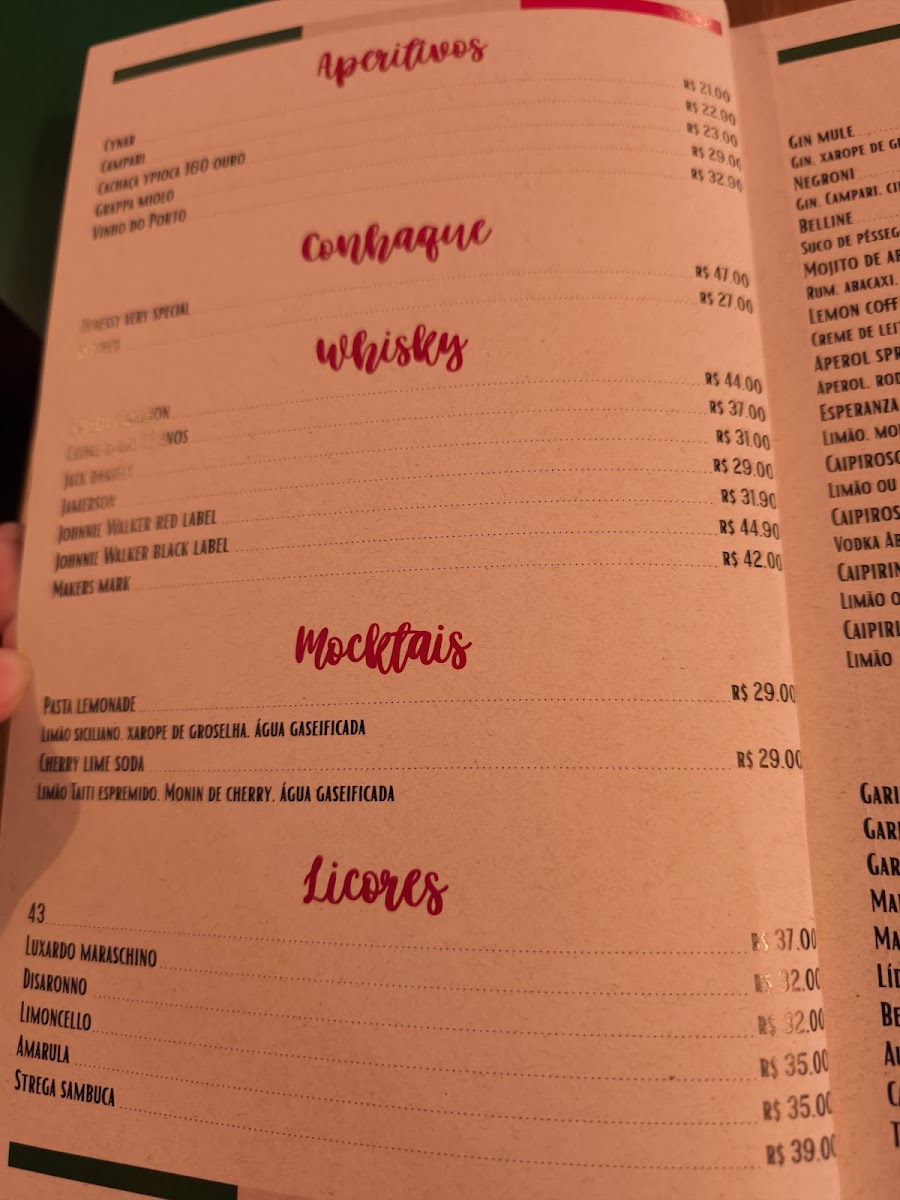 Aperitivos
CYNAR R$ 21.00
CAMPARI R$ 22.90
CACHAÇA YPIOCA 160 OURO R$ 23.00
GRAPPA MIOLO R$ 29.00
VINHO DO PORTO R$ 32.90
Conhaque
HENESSY VERY SPECIAL R$ 47.00
R$ 27.00
Whisky
R$ 44.00
12 ANOS R$ 37.00
JACK DANIELS R$ 31.00
JAMERSON R$ 29.00
JOHNNIE WALKER RED LABEL R$ 31.90
JOHNNIE WALKER BLACK LABEL R$ 44.90
MAKERS MARK R$ 42.00
Mocktais
PASTA LEMONADE R$ 29.00
LIMÃO SICILIANO, XAROPE DE GROSELHA, ÁGUA GASEIFICADA
CHERRY LIME SODA R$ 29.00
LIMÃO TAITI ESPREMIDO, MONIN DE CHERRY, ÁGUA GASEIFICADA
Licores
43 R$ 37.00
LUXARDO MARASCHINO R$ 32.00
DISARONNO R$ 32.00
LIMONCELLO R$ 35.00
AMARULA R$ 35.00
STREGA SAMBUCA R$ 39.00
GIN MULE
GIN, XAROPE DE
NEGRONI
GIN, CAMPARI,
BELLINE
SUCO DE
MOJITO DE
RUM, ABACAXI,
LEMON
CREME DE
APEROL
APEROL,
ESPERANZA
LIMÃO,
LIMÃO OU
VODKA
LIMÃO
LIMÃO